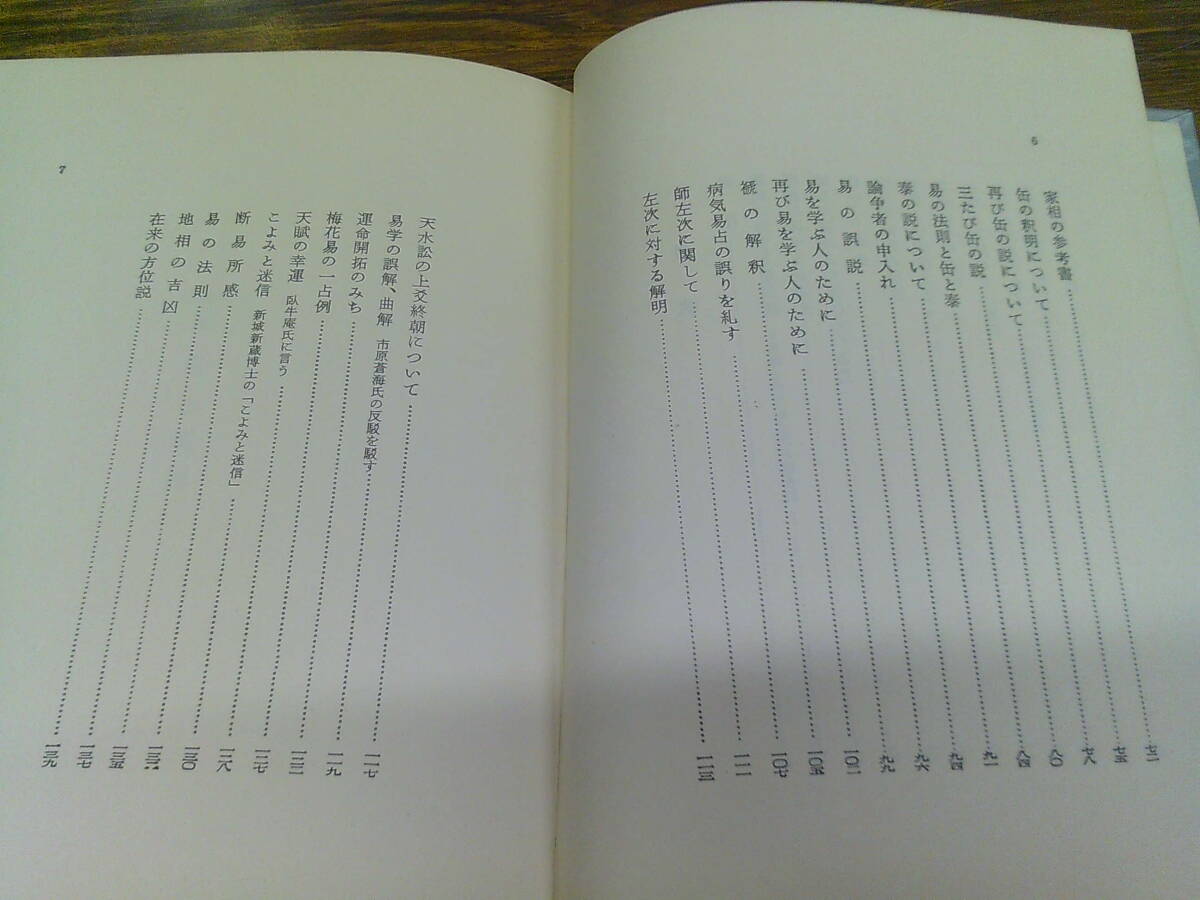 6
家相の参考書……七二
缶の釈明について……七五
再び缶の説について……七八
三たび缶の説……八〇
易の法則と缶と泰……八四
泰の説について……九一
論争者の申入れ……九四
易の誤説……九六
易を学ぶ人のために……九九
再び易を学ぶ人のために……一〇二
褫の解釈……一〇五
病気易占の誤りを糺す……一〇七
師左次に関して……一一一
左次に対する解明……一一三
7
天水訟の上爻終朝について……一一七
易学の誤解、曲解 市原蒼海氏の反駁を駁す……一一九
運命開拓のみち……一二二
梅花易の一占例……一二七
天賦の幸運 臥牛庵氏に言う……一二八
こよみと迷信 新城新蔵博士の「こよみと迷信」……一三〇
断易所感……
易の法則……一三五
地相の吉凶……一三七
在来の方位説……一三九